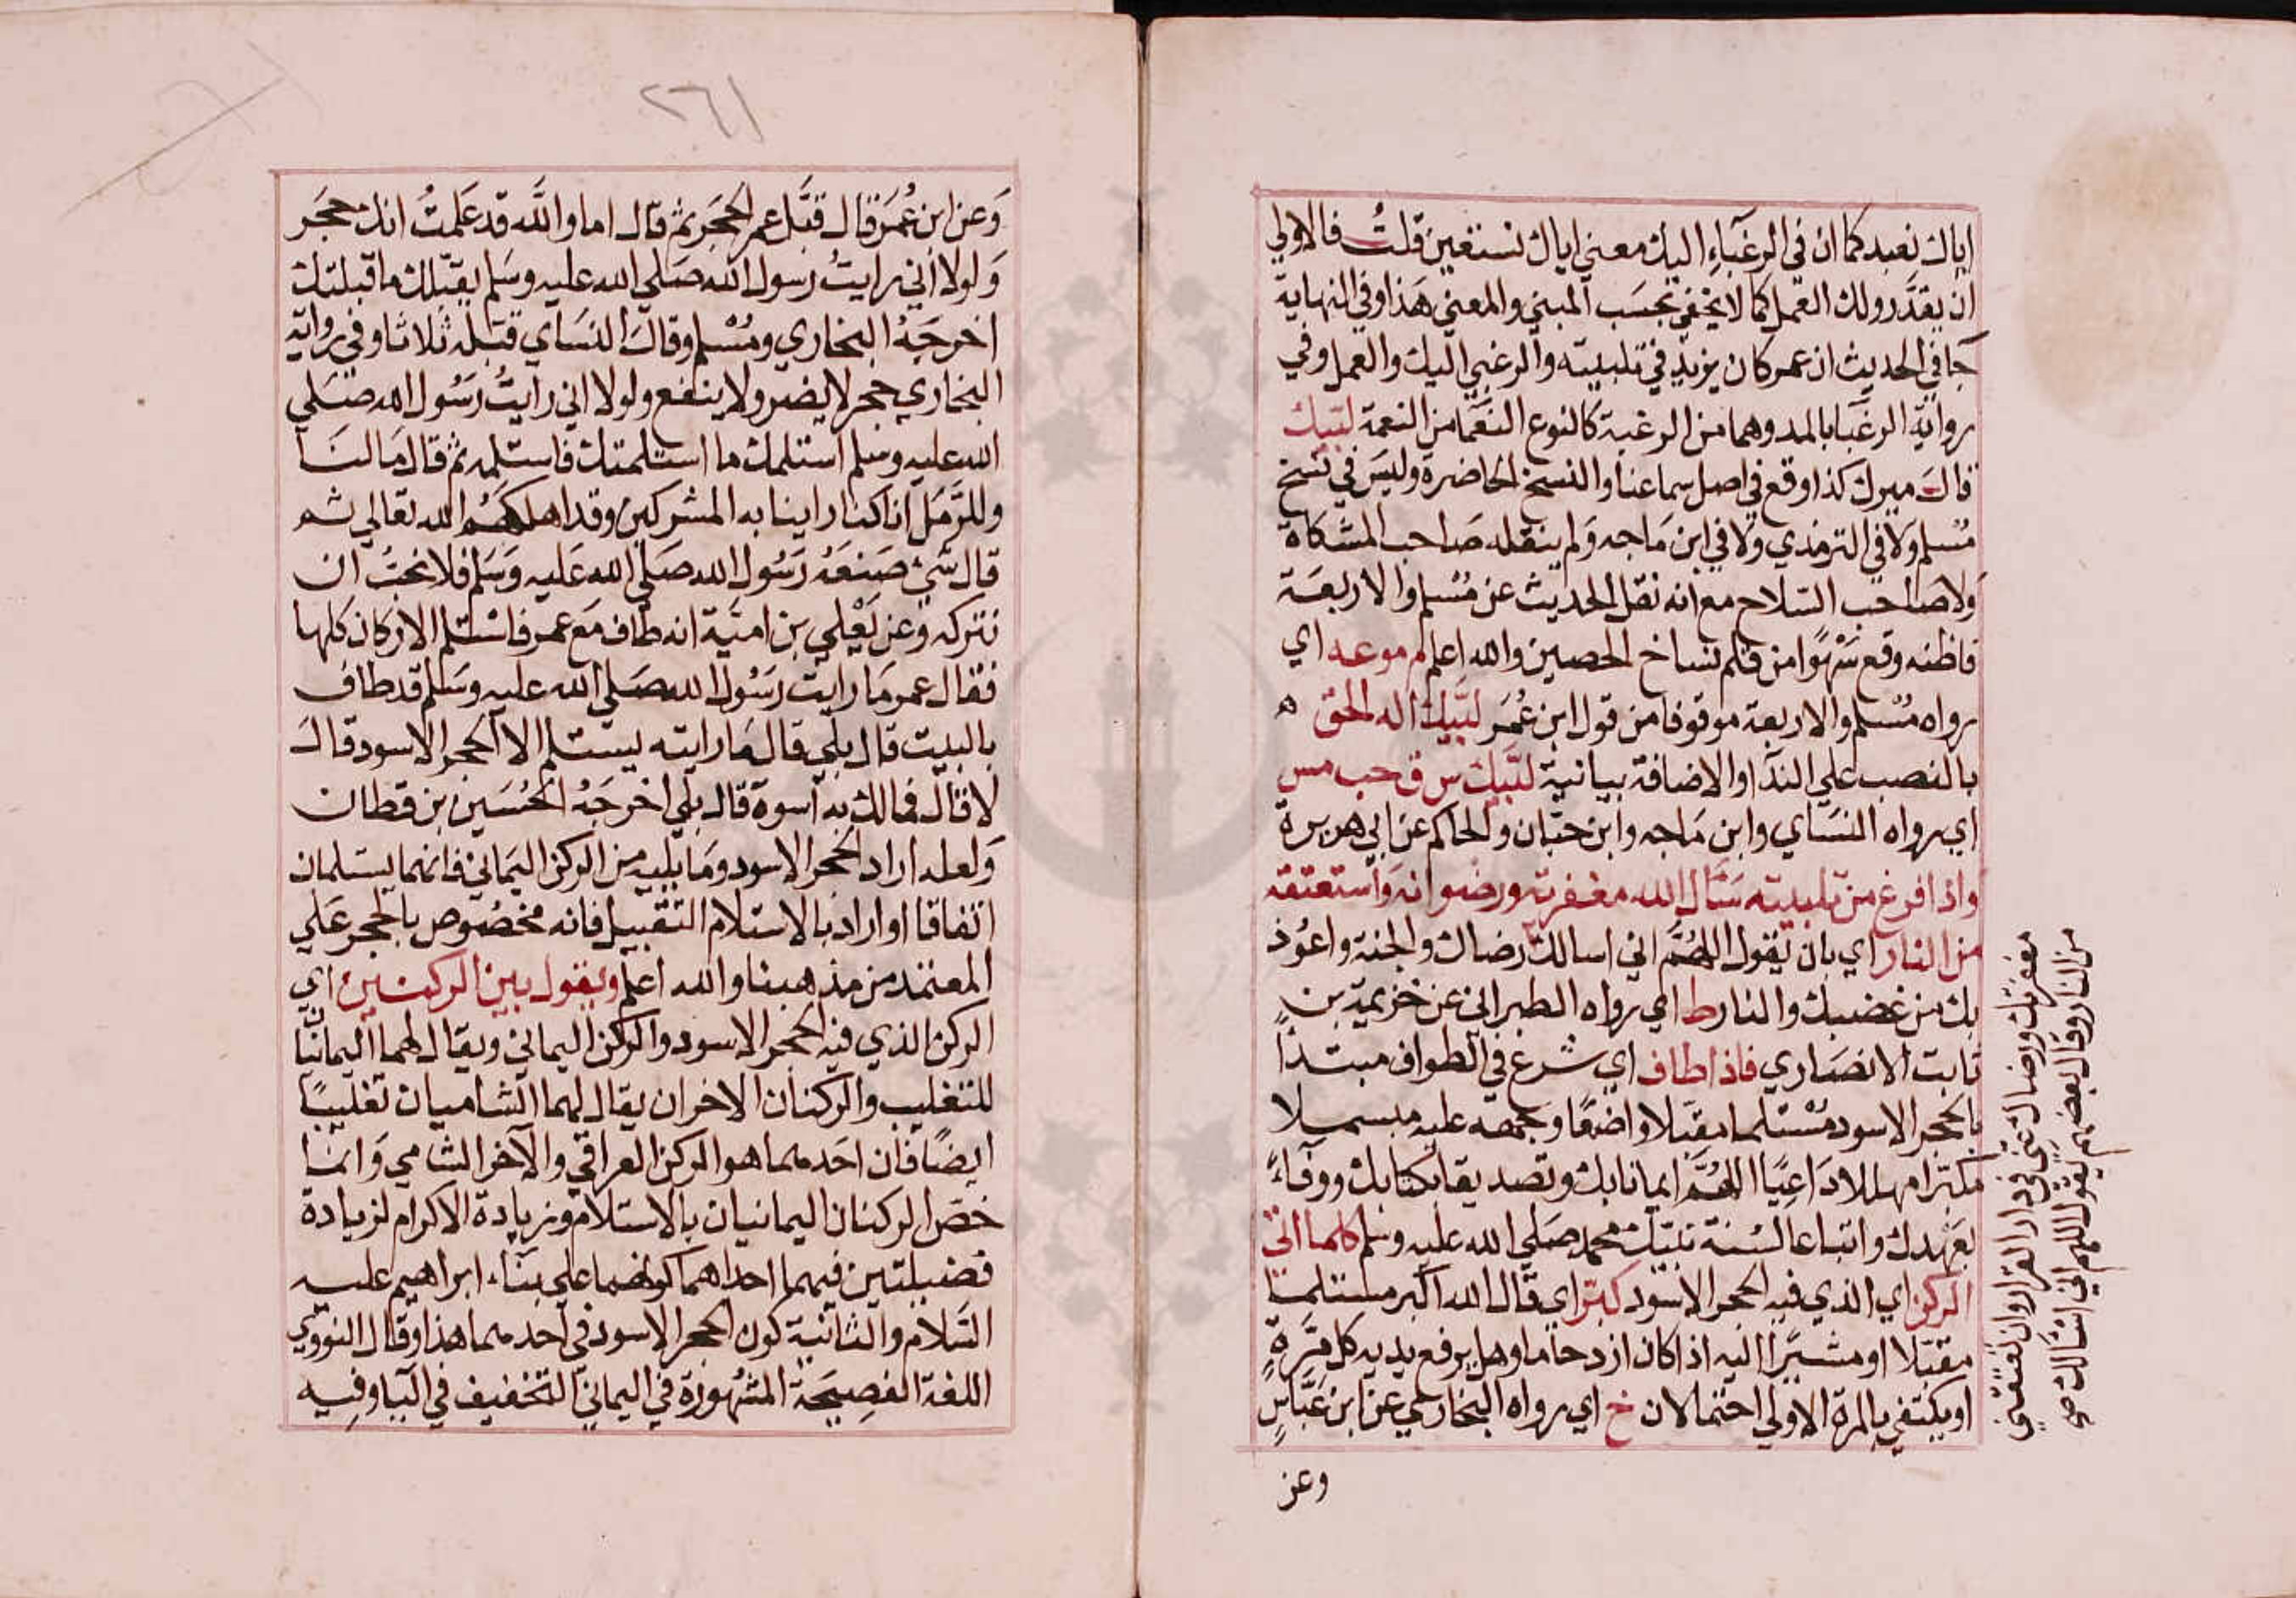 اياك نعبد كما ان في الرغباء اليك معني اياك نستعين قلت فالاولي
ان يقدر ولك العمل كما لا يخفي بحسب المبني والمعني هذا وفي النهاية
جا في الحديث ان عمر كان يزيد في تلبيته والرغبي اليك والعمل وفي
رواية الرغبا بالمد وهما من الرغبة كالنوع النعما من النعمة لبيك
قال ميرك كذا وقع في اصل سماعنا والنسخ الحاضرة وليس في نسخ
مسلم ولا في الترمذي ولا في ابن ماجه ولم ينقله صاحب المشكاة
ولا صاحب السلاح مع انه نقل الحديث عن مسلم والاربعة
فاظنه وقع سهوا من قلم نساخ الحصين والله اعلم م موعه اي
رواه مسلم والاربعة موقوفا من قول ابن عمر لبيك اله الحق ه
بالنصب علي الندا والاضافة بيانية لبيك س ق حب مس
اي رواه النسائي وابن ماجه وابن حبان والحاكم عن ابي هريرة
واذا فرغ من تلبيته سال الله مغفرته ورضوانه واستعتقه
من النار اي بان يقول اللهم اني اسالك رضاك والجنة واعوذ
بك من غضبك والنار ط اي رواه الطبراني عن خزيمة بن
ثابت الانصاري فاذا طاف اي شرع في الطواف مبتدا
بالحجر الاسود مستلما مقبلا واضعا وجهه عليه مبسملا
مكبرا مهللا داعيا اللهم ايمانا بك وتصديقا بكتابك ووفاء
بعهدك واتباعا لسنة نبيك محمد صلي الله عليه وسلم كلما اتي
الركن اي الذي فيه الحجر الاسود كبر اي قال الله اكبر مستلما
مقبلا او مشيرا اليه اذا كان ازدحاما وهل يرفع يديه كل مرة
او يكتفي بالمرة الاولي احتمالان خ اي رواه البخاري عن ابن عباس
وعن
مغفرتك ورضاك عني في دار القرار وان تعتقني
من النار وقال بعضهم يقول اللهم اني اسالك صح
٢٦١
وعن ابن عمر قال قبل عمر الحجر ثم قال اما والله قد علمت انك حجر
ولولا اني رايت رسول الله صلي الله عليه وسلم يقبلك ما قبلتك
اخرجه البخاري ومسلم وقال النسائي قبله ثلاثا وفي رواية
البخاري حجر لا يضر ولا ينفع ولولا اني رايت رسول الله صلي
الله عليه وسلم استلمك ما استلمتك فاستلمه ثم قال ما لنا
وللرمل انا كنا راينا به المشركين وقد اهلكهم الله تعالي ثم
قال شي صنعه رسول الله صلي الله عليه وسلم فلا نحب ان
نتركه وعن يعلي بن امية انه طاف مع عمر فاستلم الاركان كلها
فقال عمر ما رايت رسول الله صلي الله عليه وسلم قد طاف
بالبيت قال بلي قال ما رايته يستلم الا الحجر الاسود قال
لا قال فمالك به اسوة قال بلي اخرجه الحسين بن قطان
ولعله اراد الحجر الاسود وما يليه من الركن اليماني فانهما يستلمان
اتفاقا او اراد بالاستلام التقبيل فانه مخصوص بالحجر علي
المعتمد من مذهبنا والله اعلم ويقول بين الركنين اي
الركن الذي فيه الحجر الاسود والركن اليماني ويقال لهما اليمانيا
للتغليب والركنان الاخران يقال لهما الشاميان تغليبا
ايضا فان احدهما هو الركن العراقي والآخر الشامي وانما
خص الركنان اليمانيان بالاستلام وزيادة الاكرام لزيادة
فضيلتين فيهما احداهما كونهما علي بناء ابراهيم عليه
السلام والثانية كون الحجر الاسود في احدهما هذا وقال النووي
اللغة الفصيحة المشهورة في اليماني التخفيف في اليا وفيه